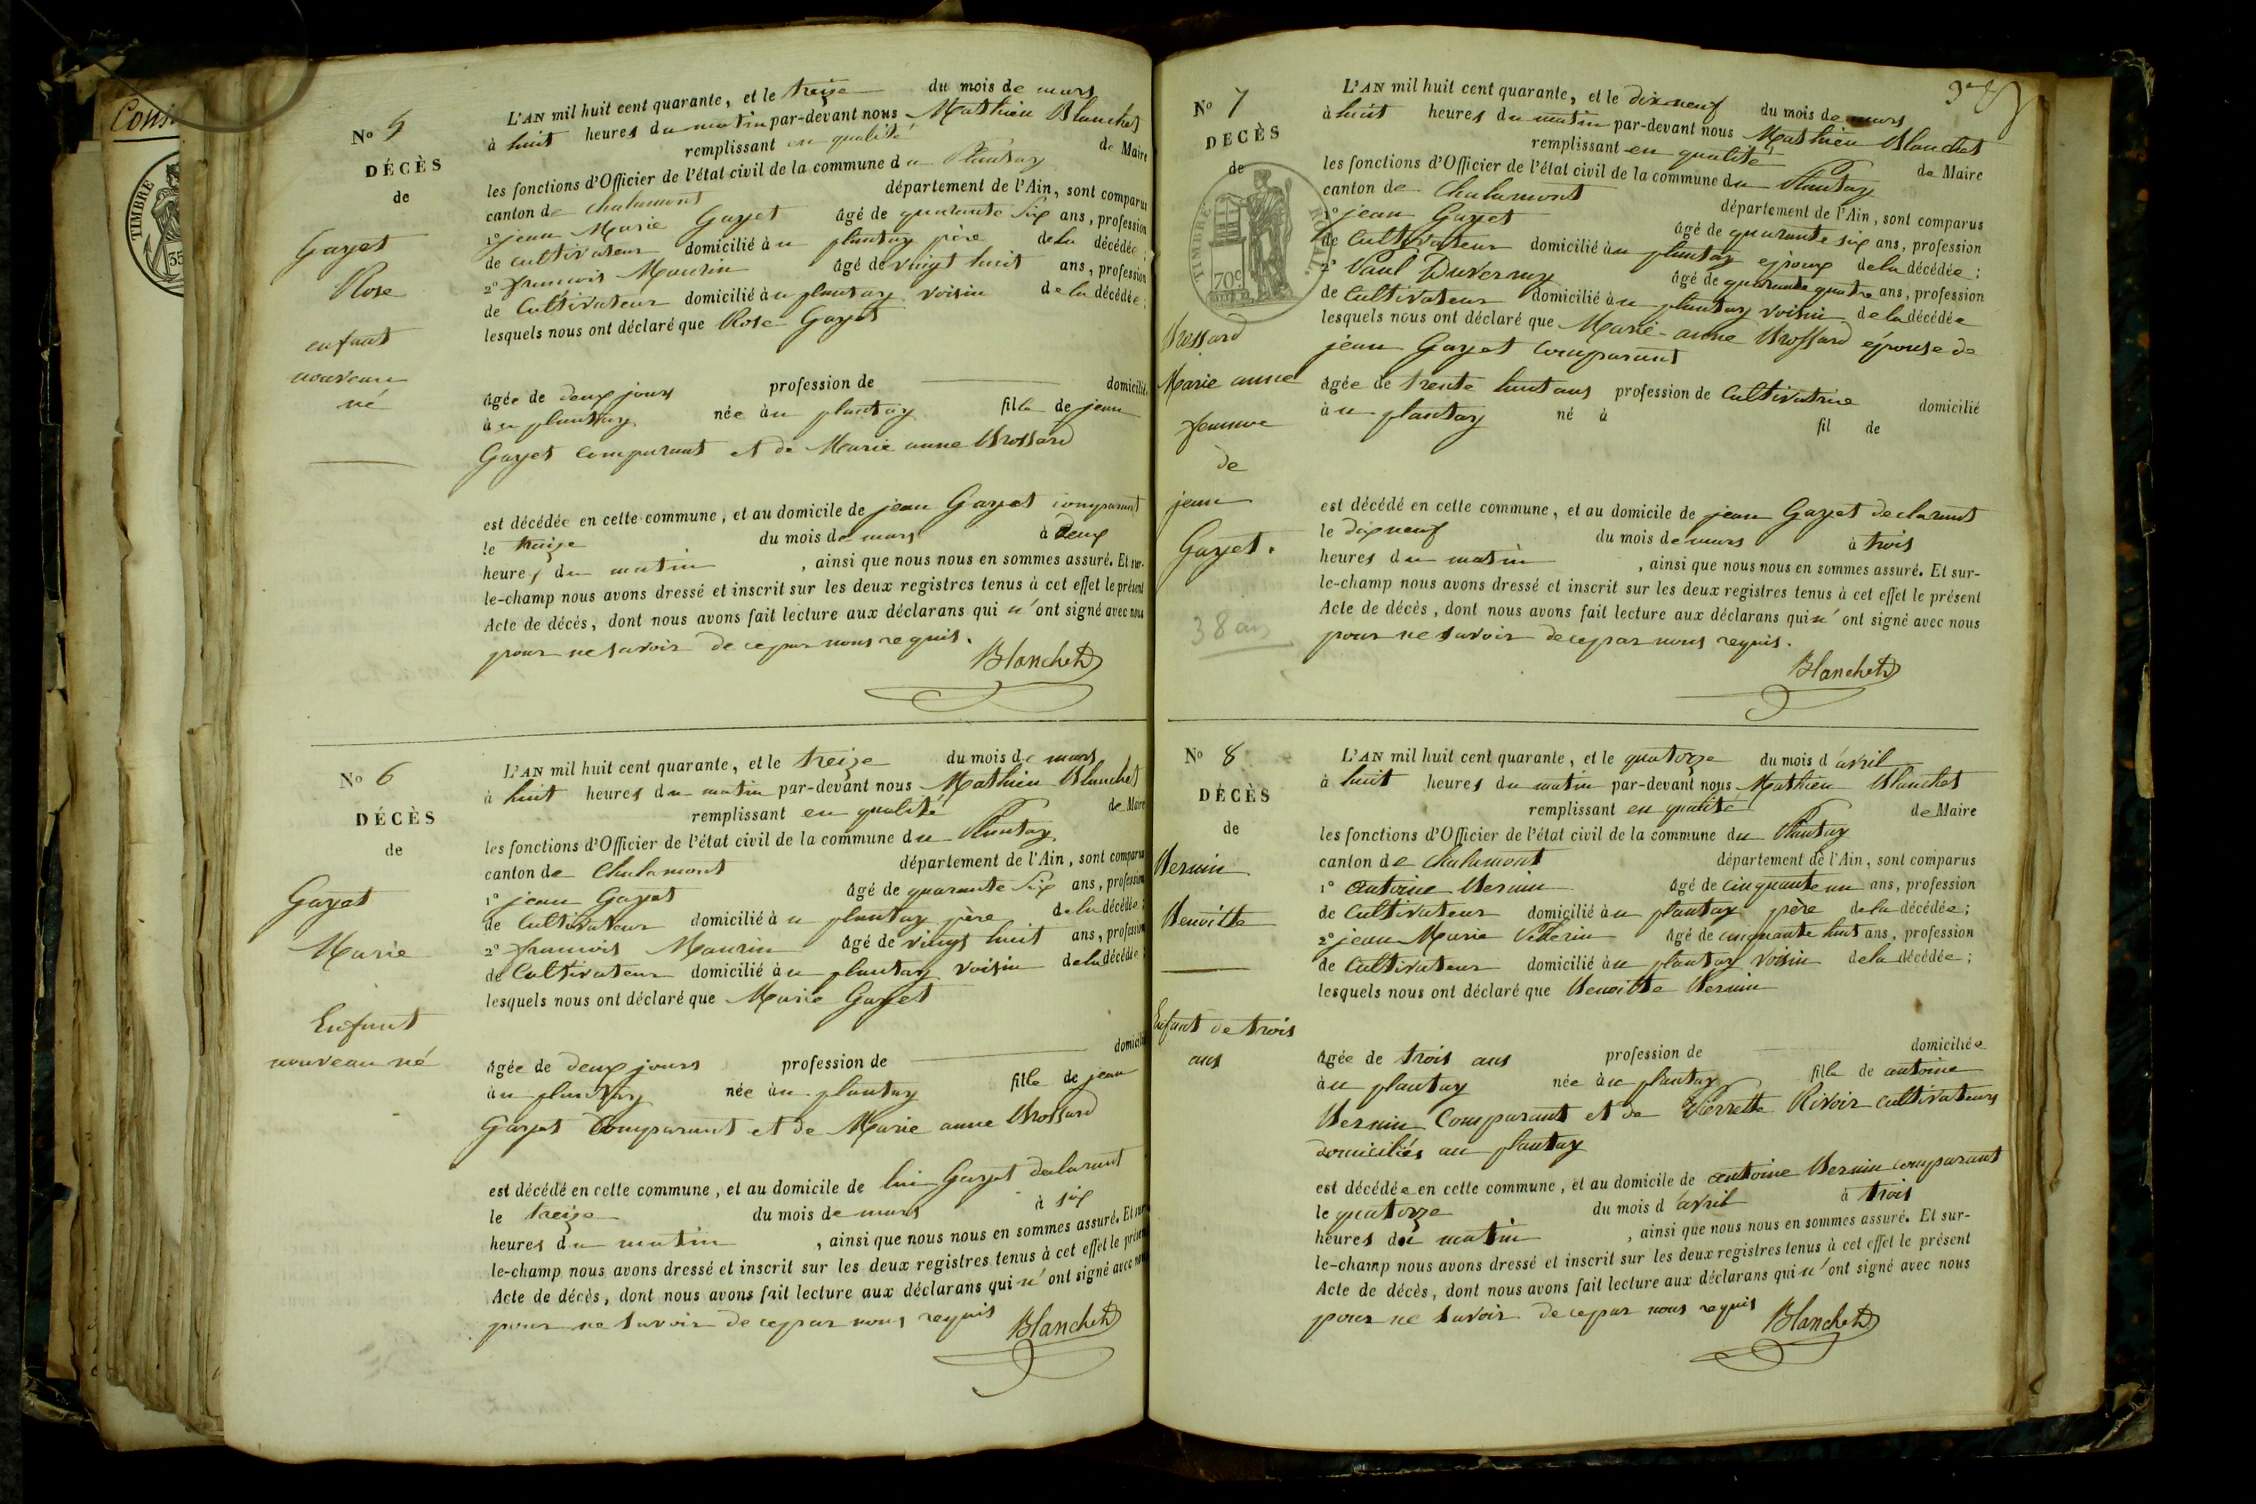 Cons
TIMBRE
35
N° 5
DÉCÈS
de
Gayet
Rose
enfant
nouveau
né
L'AN mil huit cent quarante, et le treize du mois de mars
à huit heures du matin par-devant nous Mathieu Blanchet
remplissant en qualité de Maire
les fonctions d'Officier de l'état civil de la commune du Plantay
canton de Chalamont département de l'Ain, sont comparus
1° jean Marie Gayet âgé de quarante six ans, profession
de cultivateur domicilié au plantay père de la décédée;
2° francois Maurin âgé de vingt huit ans, profession
de Cultivateur domicilié au plantay voisin de la décédée;
lesquels nous ont déclaré que Rose Gayet
âgée de deux jours profession de domicilié
au plantay née au plantay fille de jean
Gayet comparant et de Marie anne Brossard
est décédée en cette commune, et au domicile de jean Gayet comparant
le treize du mois de mars à deux
heures du matin, ainsi que nous nous en sommes assuré. Et sur-
le-champ nous avons dressé et inscrit sur les deux registres tenus à cet effet le présent
Acte de décès, dont nous avons fait lecture aux déclarans qui n'ont signé avec nous
pour ne savoir de ce par nous requis.
Blanchet
N° 6
DÉCÈS
de
Gayet
Marie
Enfant
nouveau né
L'AN mil huit cent quarante, et le treize du mois de mars
à huit heures du matin par-devant nous Mathieu Blanchet
remplissant en qualité de Maire
les fonctions d'Officier de l'état civil de la commune du Plantay
canton de Chalamont département de l'Ain, sont comparus
1° jean Gayet âgé de quarante six ans, profession
de Cultivateur domicilié au plantay père de la décédée;
2° francois Maurin âgé de vingt huit ans, profession
de Cultivateur domicilié au plantay voisin de la décédée
lesquels nous ont déclaré que Marie Gayet
âgée de deux jours profession de domicilié
au plantay née au plantay fille de jean
Gayet Comparant et de Marie anne Brossard
est décédé en cette commune, et au domicile de lui Gayet declarant
le treize du mois de mars à six
heures du matin, ainsi que nous nous en sommes assuré. Et sur
le-champ nous avons dressé et inscrit sur les deux registres tenus à cet effet le présent
Acte de décès, dont nous avons fait lecture aux déclarans qui n'ont signé avec nous
pour ne savoir de ce par nous requis
Blanchet
N° 7
DECÈS
de
TIMBRE ROYAL
70c
Brossard
Marie anne
femme
de
jean
Gayet.
38 ans
L'AN mil huit cent quarante, et le dix neuf du mois de mars
à huit heures du matin par-devant nous Mathieu Blanchet
remplissant en qualité de Maire
les fonctions d'Officier de l'état civil de la commune du Plantay
canton de Chalamont département de l'Ain, sont comparus
1° jean Gayet âgé de quarante six ans, profession
de Cultivateur domicilié au plantay epoux de la décédée;
2° Paul Duvernay âgé de quarante quatre ans, profession
de Cultivateur domicilié au plantay voisin de la décédée
lesquels nous ont déclaré que Marie-anne Brossard épouse de
jean Gayet comparant
âgée de trente huit ans profession de Cultivatrice domicilié
au plantay né à fil de
est décédé en cette commune, et au domicile de jean Gayet declarant
le dix neuf du mois de mars à trois
heures du matin, ainsi que nous nous en sommes assuré. Et sur-
le-champ nous avons dressé et inscrit sur les deux registres tenus à cet effet le présent
Acte de décès, dont nous avons fait lecture aux déclarans qui n'ont signé avec nous
pour ne savoir de ce par nous requis.
Blanchet
N° 8
DÉCÈS
de
Bernin
Benoitte
Enfant de trois
ans
L'AN mil huit cent quarante, et le quatorze du mois d'avril
à huit heures du matin par-devant nous Mathieu Blanchet
remplissant en qualité de Maire
les fonctions d'Officier de l'état civil de la commune du Plantay
canton de Chalamont département de l'Ain, sont comparus
1° antoine Bernin âgé de cinquante un ans, profession
de Cultivateur domicilié au plantay père de la décédée;
2° jean Marie âgé de cinquante huit ans, profession
de Cultivateur domicilié au plantay voisin de la décédée;
lesquels nous ont déclaré que Benoitte Bernin
âgée de trois ans profession de domiciliée
au plantay née au plantay fille de antoine
Bernin Comparant et de Pierrette Rivoir cultivateurs
domiciliés au plantay
est décédée en cette commune, et au domicile de antoine Bernin comparant
le quatorze du mois d'avril à trois
heures du matin, ainsi que nous nous en sommes assuré. Et sur-
le-champ nous avons dressé et inscrit sur les deux registres tenus à cet effet le présent
Acte de décès, dont nous avons fait lecture aux déclarans qui n'ont signé avec nous
pour ne savoir de ce par nous requis
Blanchet